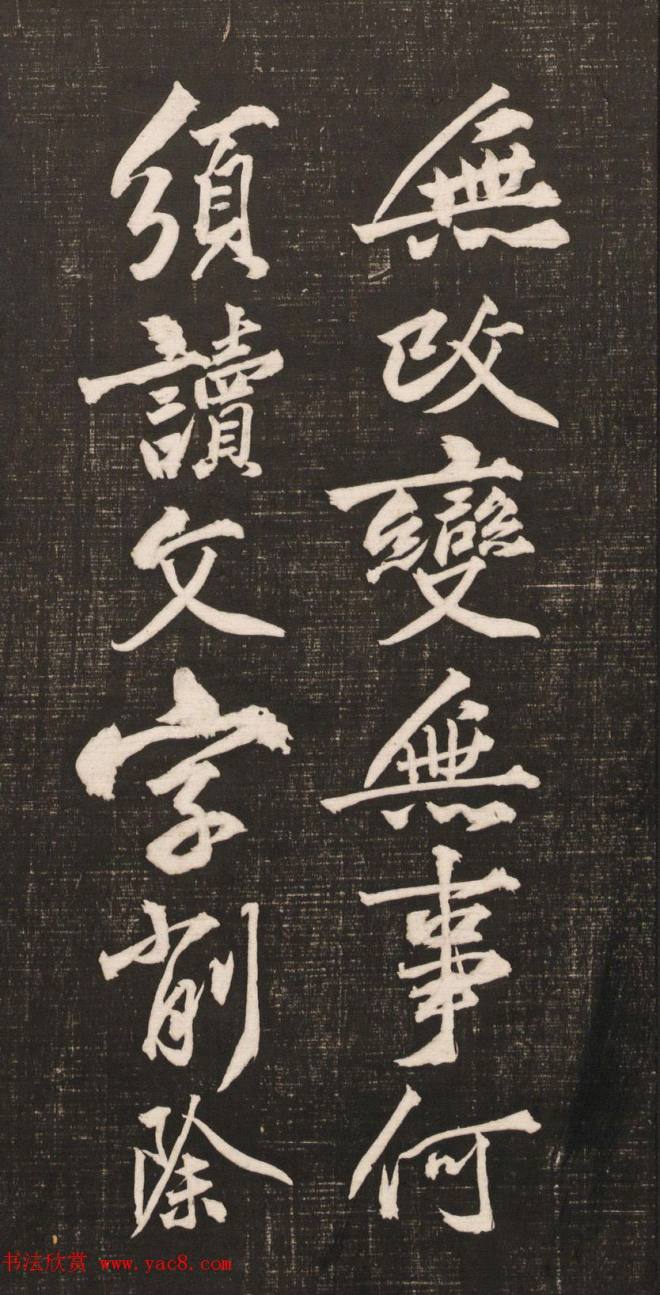 無改變無事何
須讀文字削除
书法欣赏 www.yac8.com